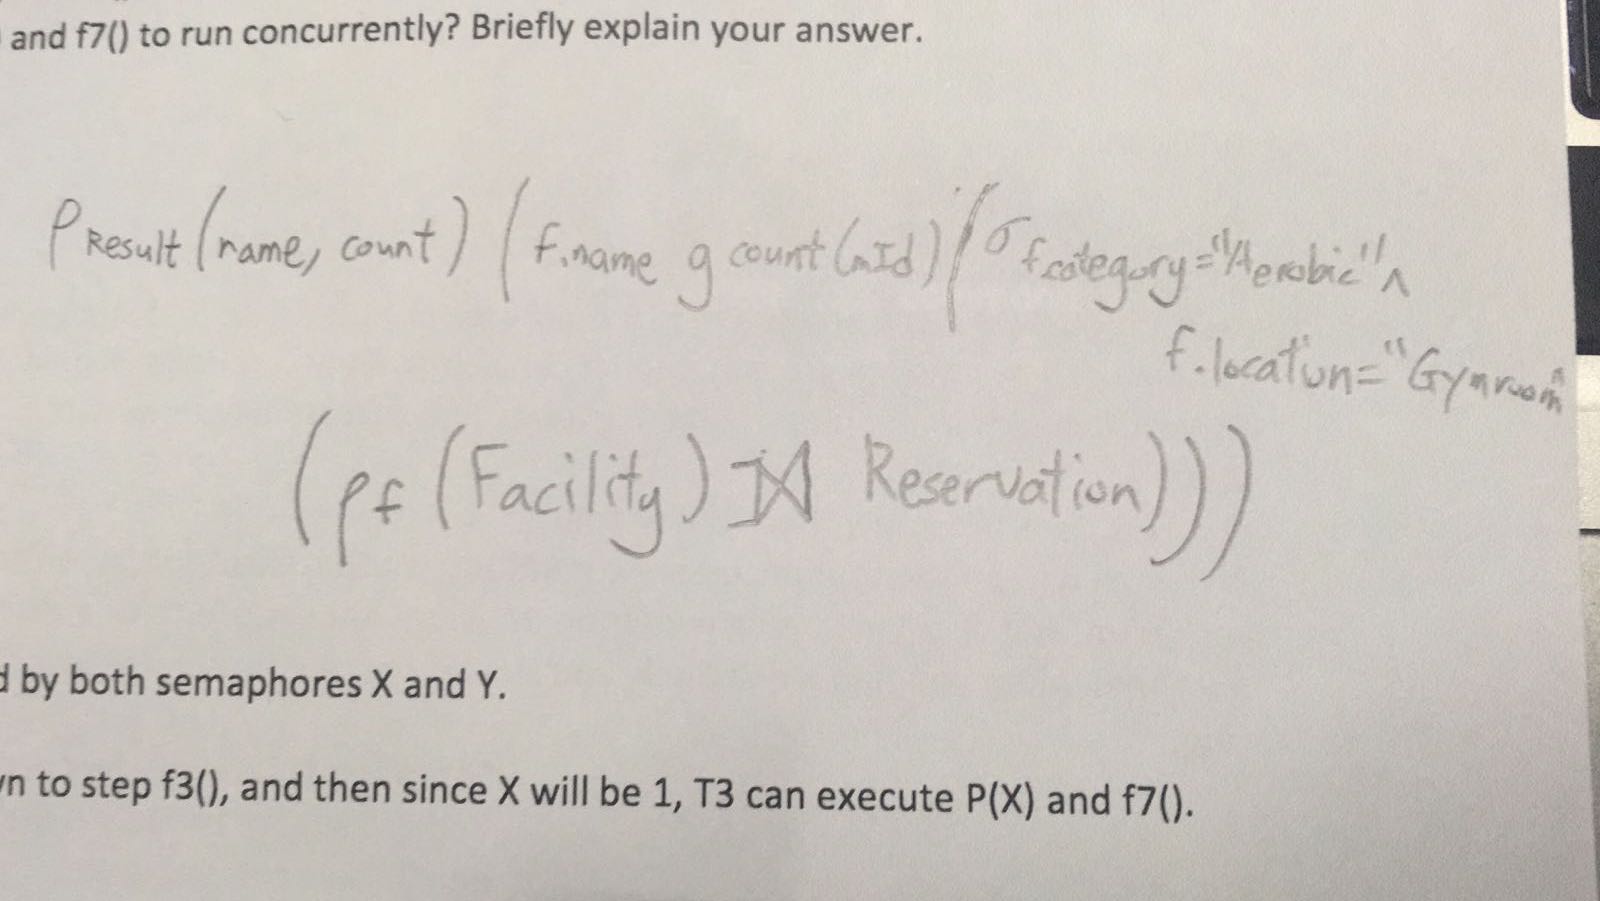 and f7() to run concurrently? Briefly explain your answer.
ρ Result (name, count) (f.name g count(mId) (σ f.category="Aerobic" ∧
f.location="Gymroom"
(ρf (Facility) ⋈ Reservation)))
d by both semaphores X and Y.
wn to step f3(), and then since X will be 1, T3 can execute P(X) and f7().